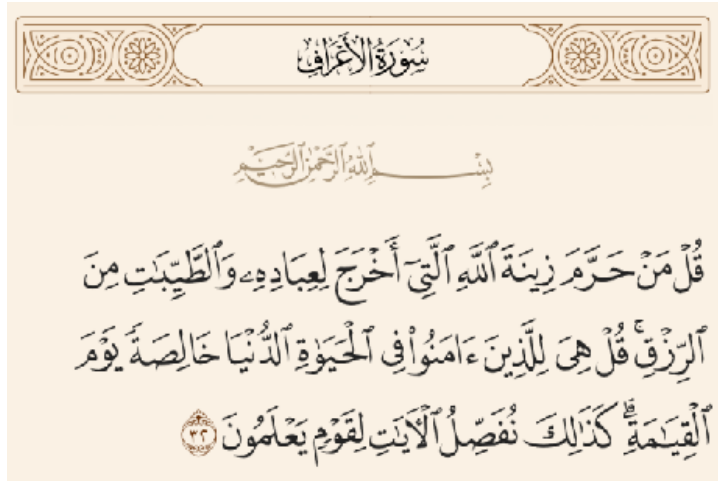 سُورَةُ الأَعْرَافِ
بِسْمِ ٱللَّهِ ٱلرَّحْمَٰنِ ٱلرَّحِيمِ
قُلْ مَنْ حَرَّمَ زِينَةَ ٱللَّهِ ٱلَّتِىٓ أَخْرَجَ لِعِبَادِهِۦ وَٱلطَّيِّبَٰتِ مِنَ
ٱلرِّزْقِ ۚ قُلْ هِىَ لِلَّذِينَ ءَامَنُوا۟ فِى ٱلْحَيَوٰةِ ٱلدُّنْيَا خَالِصَةً يَوْمَ
ٱلْقِيَٰمَةِ ۗ كَذَٰلِكَ نُفَصِّلُ ٱلْءَايَٰتِ لِقَوْمٍ يَعْلَمُونَ ٣٢